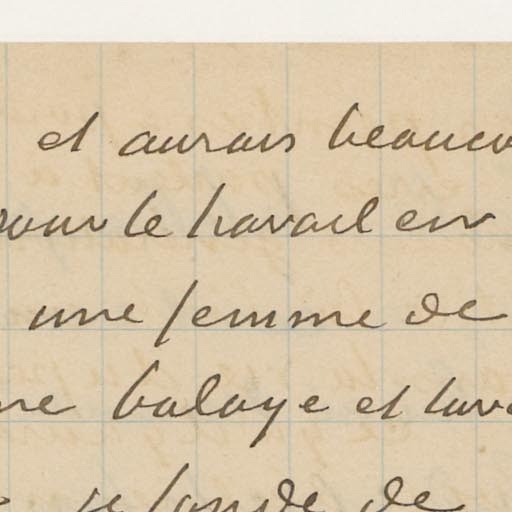 et aurais beaucou
pour le travail en
une femme de
ne balaye et lav
je
de